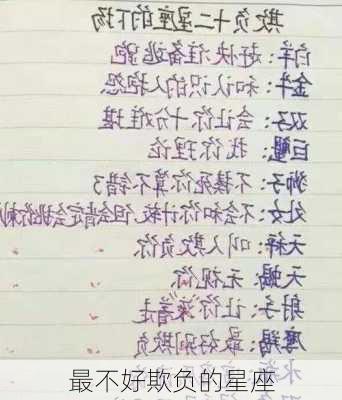 欺负十二星座的下场
白羊：赶快准备逃跑
金牛：和认识的人抱怨
双子：会让你十分难堪
巨蟹：找你理论
狮子：不揍死你算不错了
处女：不会和你计较，但会肯定会挑你刺
天秤：叫人欺负你
天蝎：无视你
射手：让你滚着走
摩羯：最好别欺负
水
最不好欺负的星座